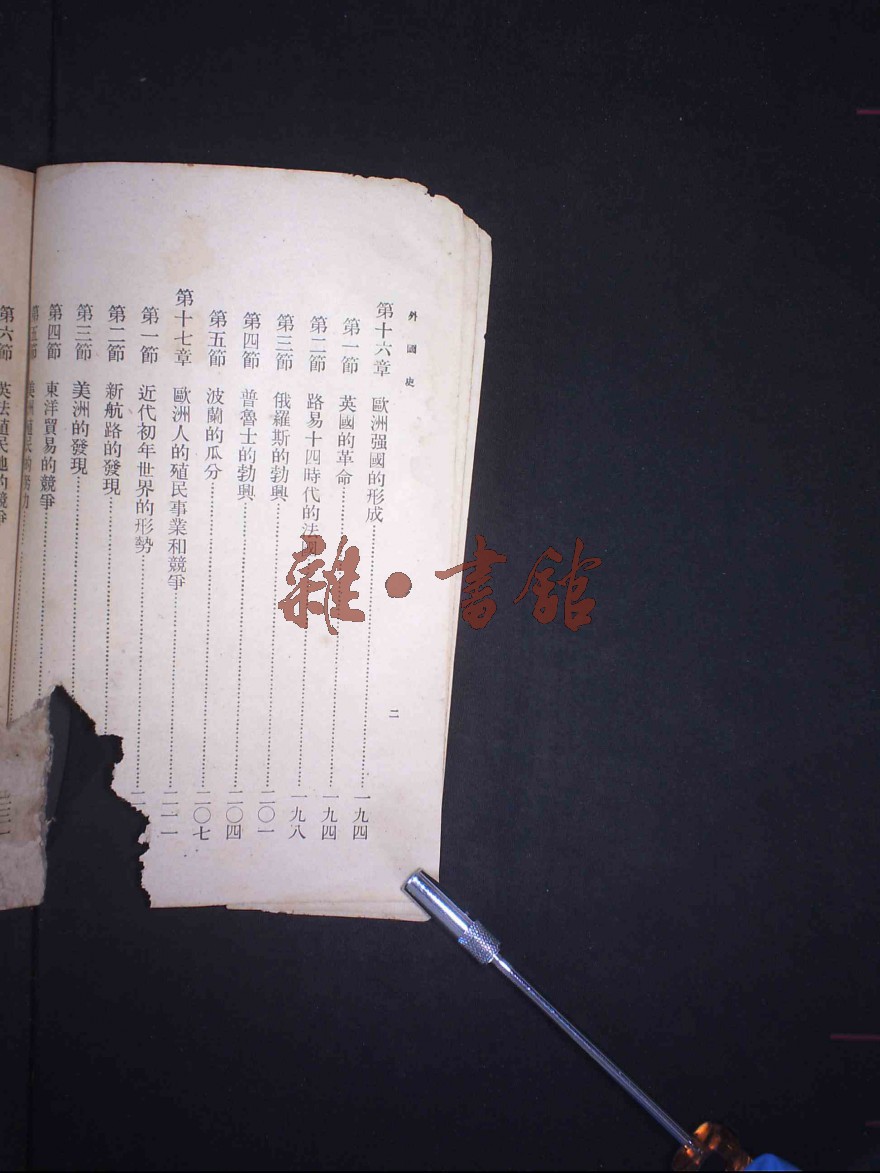 外國史
二
第十六章 歐洲强國的形成……一九四
第一節 英國的革命……一九四
第二節 路易十四時代的法國……一九八
第三節 俄羅斯的勃興……二〇一
第四節 普魯士的勃興……二〇四
第五節 波蘭的瓜分……二〇七
第十七章 歐洲人的殖民事業和競爭……二一一
第一節 近代初年世界的形勢……
第二節 新航路的發現……
第三節 美洲的發現……
第四節 東洋貿易的競爭……
第五節
第六節 英法殖民地的競爭
雜·書舘